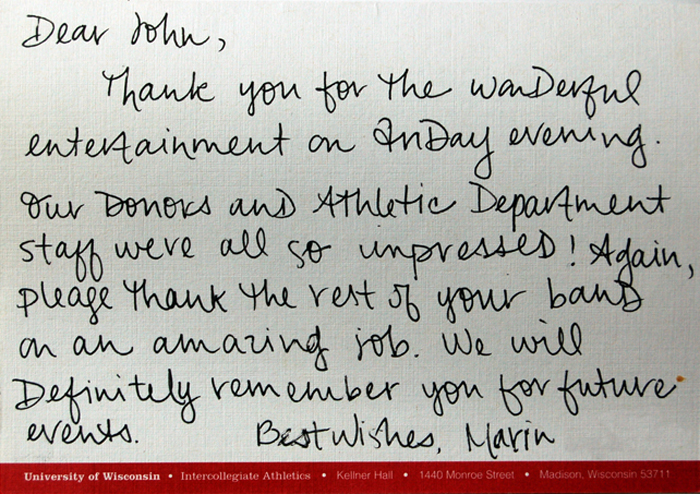 Dear John,
Thank you for the wonderful
entertainment on Friday evening.
Our Donors and Athletic Department
staff were all so impressed! Again,
please thank the rest of your band
on an amazing job. We will
Definitely remember you for future
events. Best Wishes, Marin
University of Wisconsin • Intercollegiate Athletics • Kellner Hall • 1440 Monroe Street • Madison, Wisconsin 53711